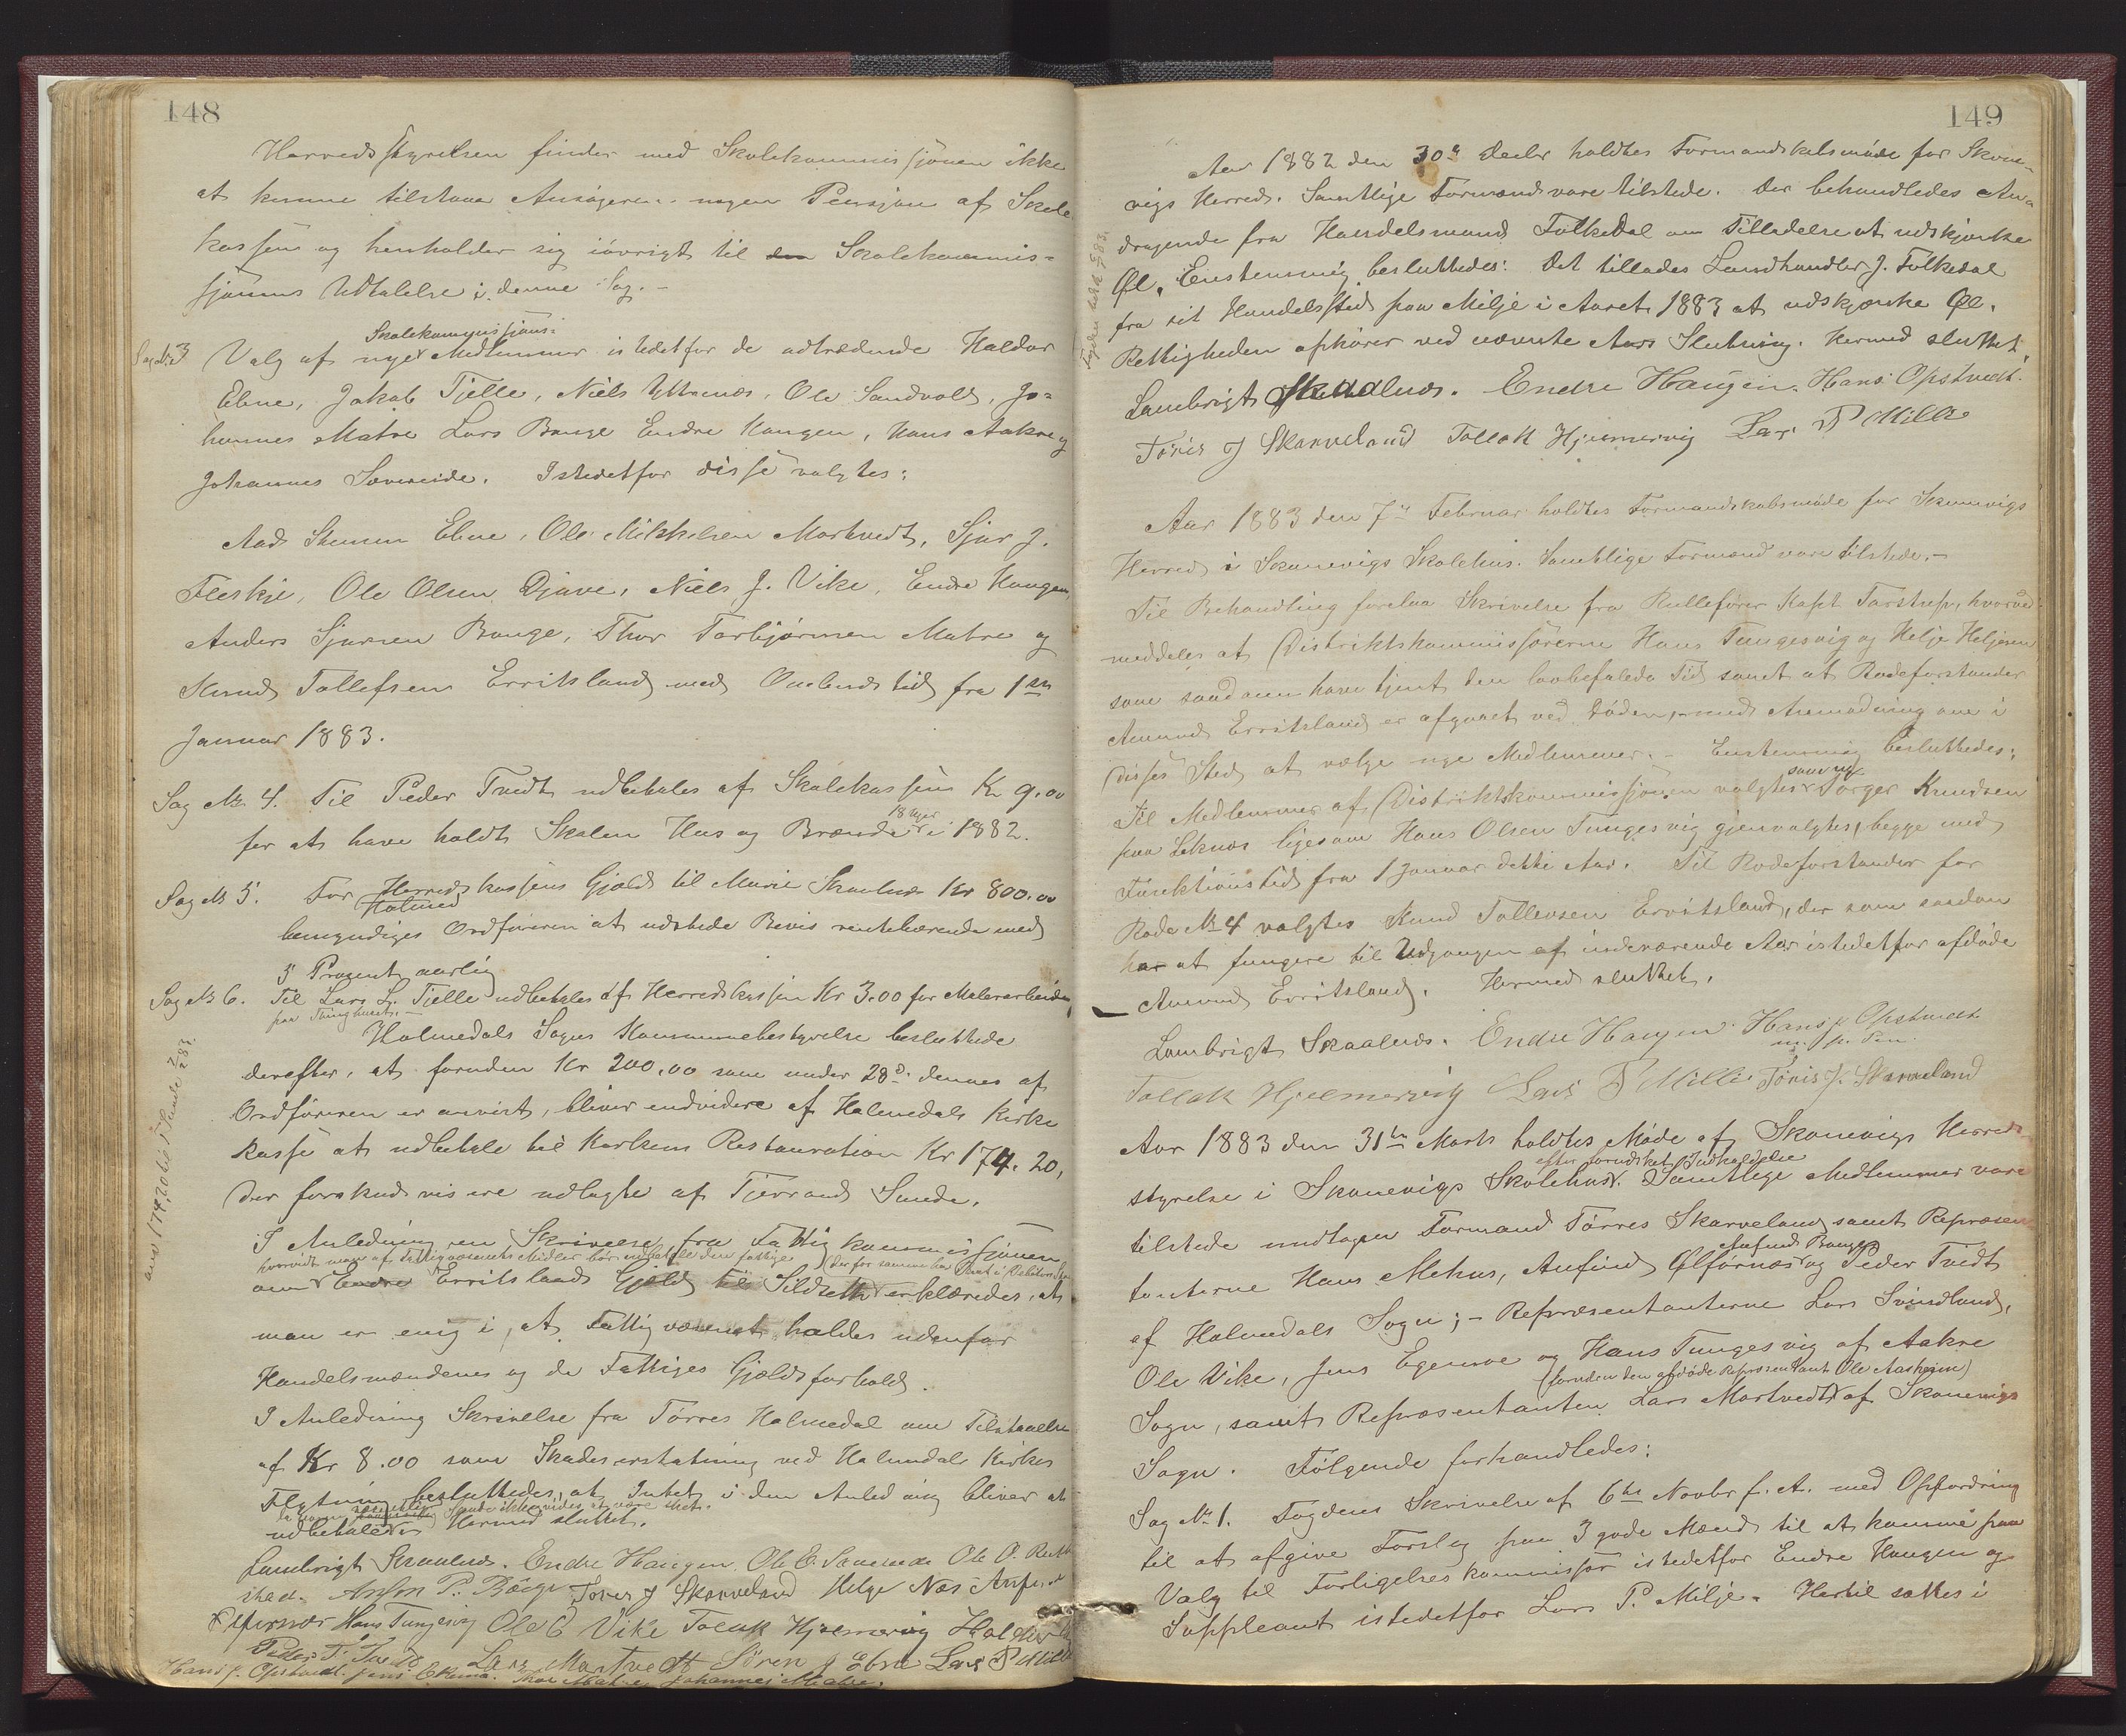 148
Herredsstyrelsen finder med Skolekommissjonen ikke
at kunne tilstaaa Ansøgeren nogen Pensjon af Skole
kassen og henholder sig iøvrigt til den Skolekommis-
sjonens Udtalelse i denne Sag.-
Skolekommissjons-
Sag No 3 Valg af nye Medlemmer istedetfor de udtrædende Haldor
Ebne, Jakob Tjelle, Niels Yttrenæs, Ole Sandvold, Jo-
hannes Matre Lars Bauge Endre Haugen, Hans Aakre og
Johannes Sævereide. Istedetfor disse valgtes:
Aad Ebne, Ole Mikkelsen Markvedt, Sjur J.
Fleskje, Ole Olsen Djuve, Niels J. Vike, Endre Haugen,
Anders Sjursen Bauge, Thor Torbjørnsen Matre og
Knud Tollefsen Erritsland med Ombudstid fra 1ste
Januar 1883.
Sag No. 4. Til Peder Tvedt udbetales af Skolekassen Kr 9.00
for at have holdt Skolen Hus og Brænde i 1882.
18 Uger
Sag No 5. For Herredskassens Gjæld til Marie Skaalnæs Kr 800.00
Holmed
bemyndiges Ordføreren at udstede Bevis rentebærende med
5 Prozent aarlig
Sag No 6. Til Lars L. Tjelle udbetales af Herredskassen Kr 3.00 for Malerarbeide
paa Thinghuset.-
Holmedals Sogns Kommunebestyrelse besluttede
derefter, at foruden Kr 200.00 som under 28de dennes af
Ordføreren er anvist, bliver endvidere af Holmedals Kirke
kasse at udbetale til Kirkens Restauration Kr 174.20,
der forskudsvis ere udlagte af Tjerrand Sunde.
anv 174,20 til T Sunde 2/2 83
I Anledning en Skrivelse fra Fattigkommissjonen
hvorvidt man af Fattigvæsenets Midler bør udbetale den fattige
om Endre Erritslands Gjæld til Sildseth erklæredes, at
man er enig i, at Fattigvæsenet holdes udenfor
Handelsmændenes og de Fattiges Gjældsforhold.
I Anledning Skrivelse fra Tørres Holmedal om Tilstaaelse
af Kr 8.00 som Skadeserstatning ved Holmedals Kirkes
Flytning besluttedes, at Intet i den Anledning bliver at
udbetale Hermed sluttet.
Lambrigt Skaalnæs. Endre Haugen Ole E. Sævereide Ole O.
Tøris J Skarveland Helge Næs
Hans Tungesvig Ole O Vike Tollak Hjelmervig Haldor
Peder T. Tvedt Lars Martvedt Sören J Ebne Lars P Milli
Hans J. Opstvedt. Jens Thor Matre Johannes Matre.
149
Aar 1882 den 30te Decbr holdtes Formandskabsmøde for Skone-
vigs Herred. Samtlige Formænd vare tilstede. Der behandledes An-
dragende fra Handelsmand Folkedal om Tilladelse at udskjænke
Øl. Enstemmig besluttedes: Det tillades Landhandler J. Folkedal
fra sit Handelssted paa Milje i Aaret 1883 at udskjænke Øl.
Rettigheden ophører ved nævnte Aars Slutning. Hermed sluttet.
Lambrigt Skaalnæs. Endre Haugen. Hans Opstvedt.
Töris J Skarveland Tollak Hjelmervig Lars P Milli
Aar 1883 den 7de Februar holdtes Formandskabsmøde for Skonevigs
Herred i Skonevigs Skolehus. Samtlige Formænd vare tilstede.-
Til Behandling forelaa Skrivelse fra Rullefører Kapt Tarstrup, hvorved
meddeles at Distriktskommissørerne Hans Tungesvig og Helje Heljesen
som saadanne have tjent den lovbefalede Tid samt at Rodeforstander
Amund Erritsland er afgaaet ved Døden, med Anmodning om i
disses Sted at vælge nye Medlemmer. - Enstemmig besluttedes:
Til Medlemmer af Distriktskommissjonen valgtes Torger Knudsen
som ny
paa Leknæs ligesom Hans Olsen Tungesvig gjenvalgtes, begge med
Funktionstid fra 1 Januar dette Aar. Til Rodeforstander for
Rode No 4 valgtes Knud Tollevsen Erritsland, der som saadan
har at fungere til Udgangen af indeværende Aar istedetfor afdøde
Amund Erritsland. Hermed sluttet.
Lambrigt Skaalnæs. Endre Haugen Hans J. Opstvedt
m. p. Pen.
Tollak Hjelmervig Lars P Milli Töris J. Skarveland
Aar 1883 den 31te Marts holdtes Møde af Skonevigs Herreds-
efter forudsket Indkaldelse
styrelse i Skonevigs Skolehus. Samtlige Medlemmer vare
tilstede undtagen Formand Tørres Skarveland samt Repræsen-
tanterne Hans Mehus, Anfind Ølfernæs og Peder Tvedt
Anfind Bauge
af Holmedals Sogn; - Repræsentanterne Lars Svindland,
Ole Vike, Jens Egenæs og Hans Tungesvig af Aakre
(foruden den afdøde Repræsentant Ole Aasheim)
Sogn, samt Repræsentanten Lars Martvedt af Skonevigs
Sogn. Følgende forhandledes:
Sag No 1. Fogdens Skrivelse af 6te Novbr f. A. med Opfordring
til at afgive Forslag paa 3 gode Mænd til at komme paa
Valg til Forligelseskommissær istedetfor Endre Haugen og
Suppleant istedetfor Lars P. Milje. Hertil sattes i